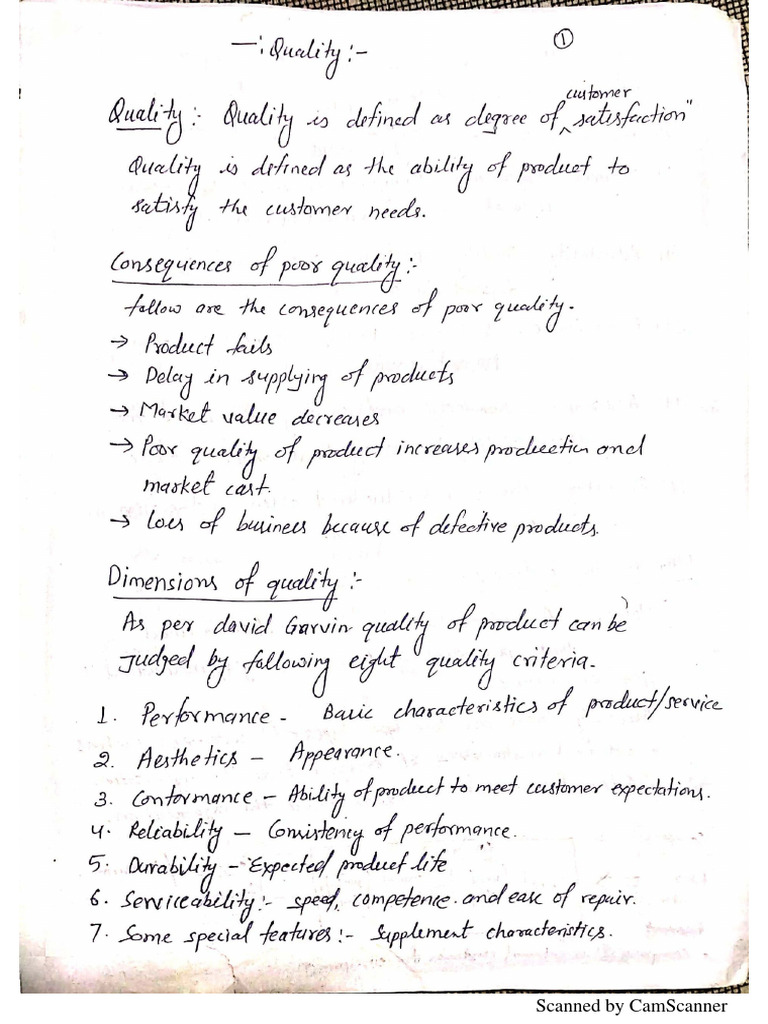 —: Quality :-
1
Quality :- Quality is defined as degree of customer satisfaction"
Quality is defined as the ability of product to
satisfy the customer needs.
Consequences of poor quality :-
follow are the consequences of poor quality.
→ Product fails
→ Delay in supplying of products
→ Market value decreases
→ Poor quality of product increases production and
market cost.
→ Loss of business because of defective products.
Dimensions of quality :-
As per david Garvin quality of product can be
Judged by following eight quality criteria.
1. Performance - Basic characteristics of product/service
2. Aesthetics - Appearance.
3. Conformance - Ability of product to meet customer expectations.
4. Reliability - Consistency of performance.
5. Durability - Expected product life
6. Serviceability :- speed, competence and ease of repair.
7. Some special features :- Supplement characteristics.
Scanned by CamScanner